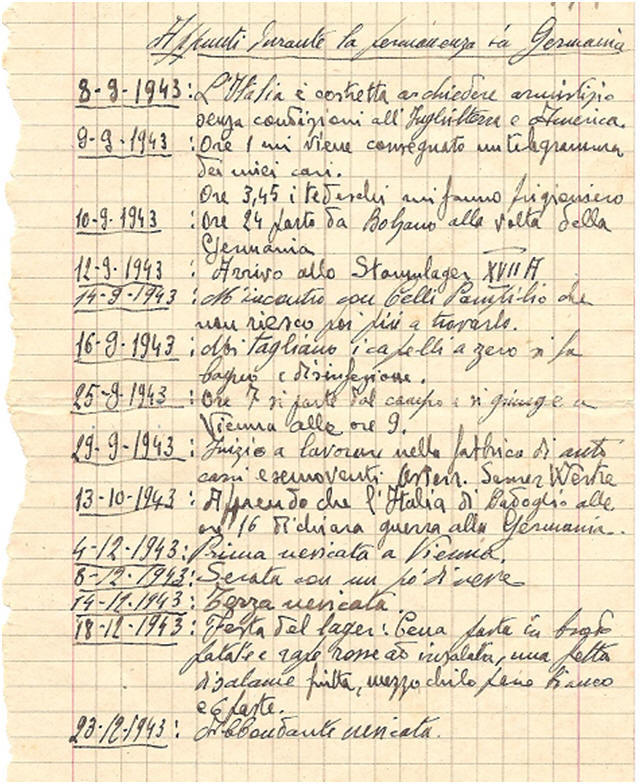 Appunti durante la permanenza in Germania
8-9-1943: L'Italia è costretta a chiedere armistizio
senza condizioni all'Inghilterra e America.
9-9-1943: Ore 1 mi viene consegnato un telegramma
dei miei cari.
Ore 3,45 i tedeschi mi fanno prigioniero
10-9-1943: Ore 24 parto da Bolzano alla volta della
Germania
12-9-1943: Arrivo allo Stammlager XVII A
14-9-1943: M'incontro con Celli Panfilio che
non riesco poi più a trovarlo.
16-9-1943: Mi tagliano i capelli a zero si fa
bagno e disinfezione.
25-9-1943: Ore 7 si parte dal campo e si giunge a
Vienna alle ore 9.
29-9-1943: Inizio a lavorare nella fabbrica di auto
carri e semoventi Werke
13-10-1943: Apprendo che l'Italia di Badoglio alle
ore 16 dichiara guerra alla Germania..
4-12-1943: Prima nevicata a Vienna.
8-12-1943: Serata con un pò di neve
14-12-1943: Terza nevicata.
18-12-1943: Festa del lager: Cena pasta in brodo
patate e rape rosse ad insalata, una fetta
di salame fritta, mezzo chilo pane bianco
e 6 paste.
23-12-1943: Abbondante nevicata.